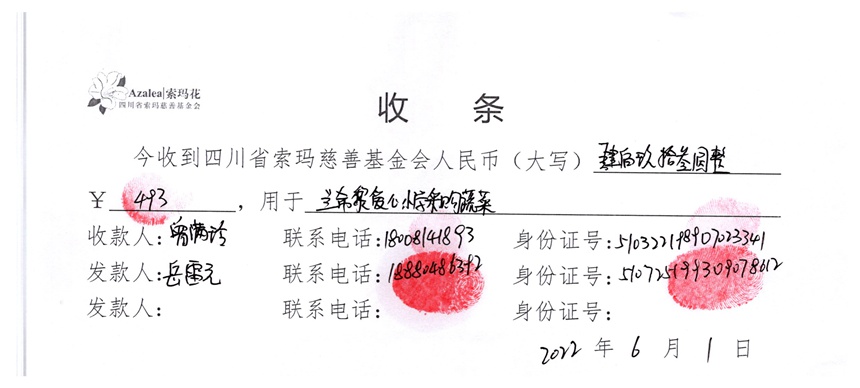 Azalea|索玛花
四川省索玛慈善基金会
收 条
今收到四川省索玛慈善基金会人民币（大写）肆佰玖拾叁圆整
￥ 493 ，用于 蔬菜
收款人: 联系电话:18008141893 身份证号:510322198907023341
发款人:岳雷元 联系电话:18880486392 身份证号:510725199309078612
发款人: 联系电话: 身份证号:
2022 年 6 月 1 日